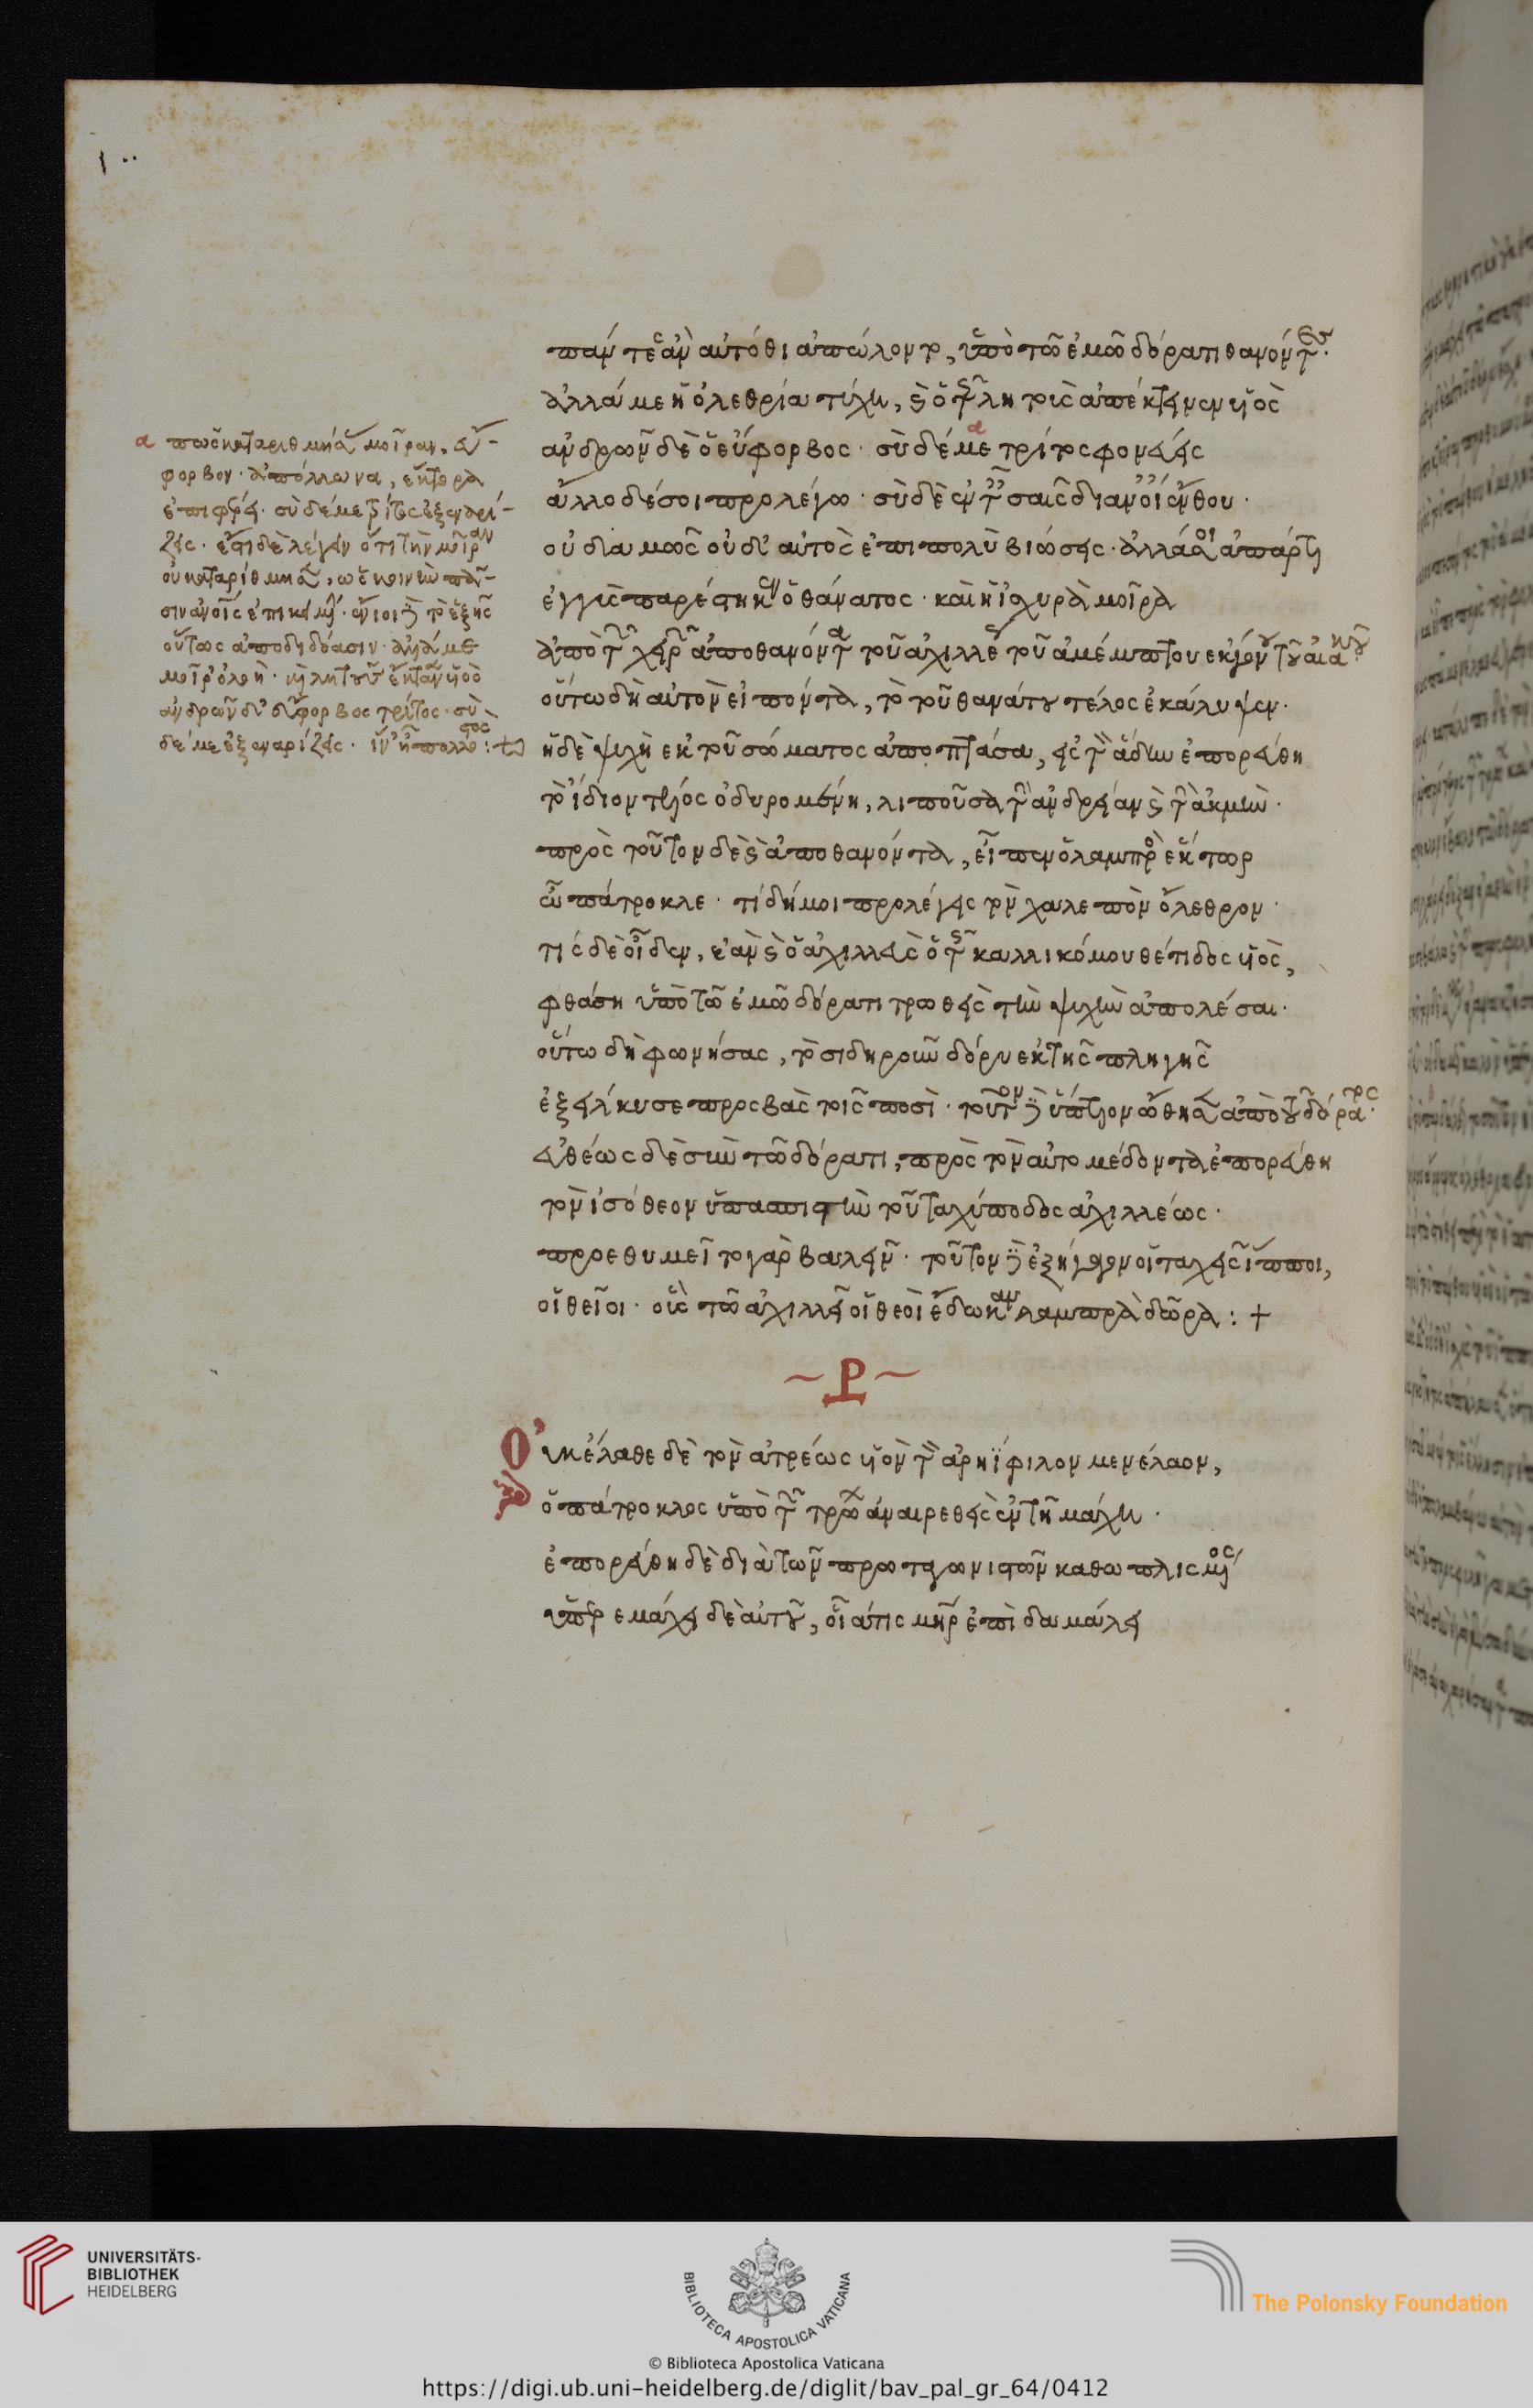 πάντες ἂν αὐτόθι ἀπώλοντο, ὑπὸ τῶ ἐμῶ δόρατι θανόντες·
ἀλλά με ἡ ὀλεθρία τύχη, καὶ ὁ τῆς λητοῦς ἀπέκτεινεν υἱὸς
ἀνδρῶν δὲ ὁ εὔφορβος· σὺ δέ με τρίτος φονεύεις
ἄλλο δέ σοι προλέγω· σὺ δὲ ἐν ταῖς σαῖς διανοίαις ἔνθου·
οὐδαμῶς οὐδ' αὐτὸς ἐπιπολὺ βιώσεις· ἀλλά σοι ἀπάρτι
ἐγγὺς παρέστηκεν ὁ θάνατος· καὶ ἡ ἰσχυρὰ μοῖρα
ἀπὸ τῶν χειρῶν ἀποθανόντα τοῦ ἀχιλλέως τοῦ ἀμέμπτου ἐκγόνου τοῦ αἰακοῦ·
οὕτω δὴ αὐτὸν εἰπόντα, τὸ τοῦ θανάτου τέλος ἐκάλυψεν·
ἡ δὲ ψυχὴ ἐκ τοῦ σώματος ἀποπτάσα, εἰς τὸν ἅδην ἐπορεύθη
τὸ ἴδιον πένθος ὀδυρομένη, λιποῦσα τὴν ἀνδρείαν καὶ τὴν ἀκμὴν·
πρὸς τοῦτον δὲ καὶ ἀποθανόντα, εἶπεν ὁ λαμπρὸς ἕκτωρ
ὦ πάτροκλε· τί δή μοι προλέγεις τὸν χαλεπὸν ὄλεθρον·
τίς δὲ οἶδεν, ἐὰν καὶ ὁ ἀχιλλεὺς ὁ τῆς καλλικόμου θέτιδος υἱὸς,
φθάση ὑπὸ τῶ ἐμῶ δόρατι τρωθεὶς τὴν ψυχὴν ἀπολέσαι·
οὕτω δὴ φωνήσας, τὸ σιδηροῦν δόρυ ἐκ τῆς πληγῆς
ἐξείλκυσε προσβὰς τοῖς ποσὶ· τοῦτον δὲ ὕπτιον ὤθησεν ἀπὸ τοῦ δόρατος·
εὐθέως δὲ σὺν τῶ δόρατι, πρὸς τὸν αὐτομέδοντα ἐπορεύθη
τὸν ἰσόθεον ὑπασπιστὴν τοῦ ταχύποδος ἀχιλλέως·
προεθυμεῖτο γὰρ βαλεῖν· τοῦτον δὲ ἐξήγαγον οἱ ταχεῖς ἵπποι,
οἱ θεῖοι· οὓς τῶ ἀχιλλεῖ οἱ θεοὶ ἔδωκαν λαμπρὰ δῶρα : +
α πῶς καταριθμεῖται μοῖραν, εὔ-
φορβον· ἀπόλλωνα, ἕκτορα
ἐπιφέρει· σὺ δέ με τρίτος ἐξεναρί-
ζεις· ἔστι δὲ λέγειν ὅτι τὴν μοῖραν
οὐ καταριθμεῖται, ὡς κοινὴν πᾶ-
σιν ἀνθρώποις ἐπικειμένην· ἔνιοι δὲ τὸ ἑξῆς
οὕτως ἀποδιδόασιν· ἀλλά με
μοῖρ' ὀλοὴ· καὶ λητοῦς ἔκτανεν υἱὸς
ἀνδρῶν δ' εὔφορβος τρίτος· σὺ
δέ με ἐξεναρίζεις·
~ Ρ ~
Οὐκ ἔλαθε δὲ τὸν ἀτρέως υἱὸν τὸν ἀρηΐφιλον μενέλαον,
ὁ πάτροκλος ὑπὸ τῶν τρώων ἀναιρεθεὶς ἐν τῆ μάχη·
ἐπορεύθη δὲ διὰ τῶν πρωταγωνιστῶν καθωπλισμένος
ὑπερεμάχει δὲ αὐτοῦ, οἷά τις μήτηρ ἐπὶ δαμάλει
UNIVERSITÄTS-
BIBLIOTHEK
HEIDELBERG
BIBLIOTECA APOSTOLICA VATICANA
The Polonsky Foundation
© Biblioteca Apostolica Vaticana
https://digi.ub.uni-heidelberg.de/diglit/bav_pal_gr_64/0412